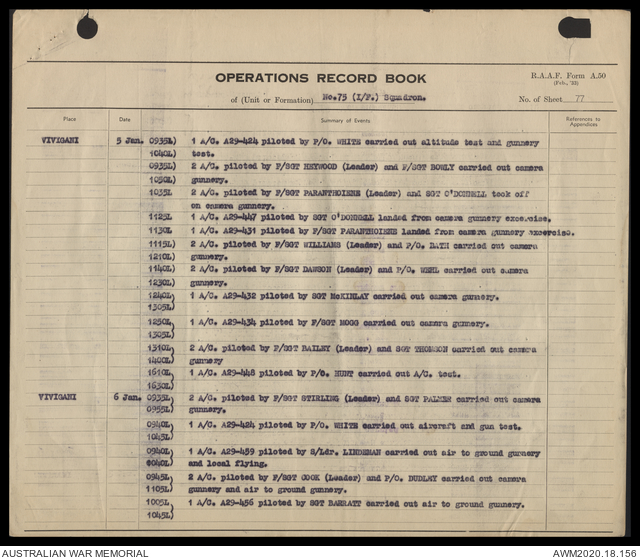 OPERATIONS RECORD BOOK
R.A.A.F. Form A.50
(Feb., )
of (Unit or Formation) No.75 (I/F.) Squadron.
No. of Sheet 77
Place Date Summary of Events References to Appendices
VIVIGANI 5 Jan. 0935L) 1 A/C. A29-424 piloted by P/O. WHITE carried out altitude test and gunnery
1040L) test.
0935L) 2 A/C. piloted by F/SGT HEYWOOD (Leader) and F/SGT BOWLY carried out camera
1050L) gunnery.
1035L 2 A/C. piloted by F/SGT PARANTHOIENE (Leader) and SGT O'DONNELL took off
on camera gunnery.
1125L 1 A/C. A29-447 piloted by SGT O'DONNELL landed from camera gunnery excercise.
1130L 1 A/C. A29-431 piloted by F/SGT PARANTHOIENE landed from camera gunnery excercise.
1115L) 2 A/C. piloted by F/SGT WILLIAMS (Leader) and P/O. BATH carried out camera
1210L) gunnery.
1140L) 2 A/C. piloted by F/SGT DAWSON (Leader) and P/O. WEHL carried out camera
1230L) gunnery.
1240L) 1 A/C. A29-432 piloted by SGT McKINLAY carried out camera gunnery.
1305L)
1250L) 1 A/C. A29-434 piloted by F/SGT MOGG carried out camera gunnery.
1305L)
1310L) 2 A/C. piloted by F/SGT BAILEY (Leader) and SGT THOMSON carried out camera
1400L) gunnery
1610L) 1 A/C. A29-448 piloted by P/O. HUNT carried out A/C. test.
1630L)
VIVIGANI 6 Jan. 0935L) 2 A/C. piloted by F/SGT STIRLING (Leader) and SGT PALMER carried out camera
0955L) gunnery.
0940L) 1 A/C. A29-424 piloted by P/O. WHITE carried out aircraft and gun test.
1045L)
0940L) 1 A/C. A29-459 piloted by S/Ldr. LINDEMAN carried out air to ground gunnery
1040L) and local flying.
0945L) 2 A/C. piloted by F/SGT COOK (Leader) and P/O. DUDLEY carried out camera
1105L) gunnery and air to ground gunnery.
1005L) 1 A/C. A29-456 piloted by SGT BARRATT carried out air to ground gunnery.
1045L)
AUSTRALIAN WAR MEMORIAL AWM2020.18.156